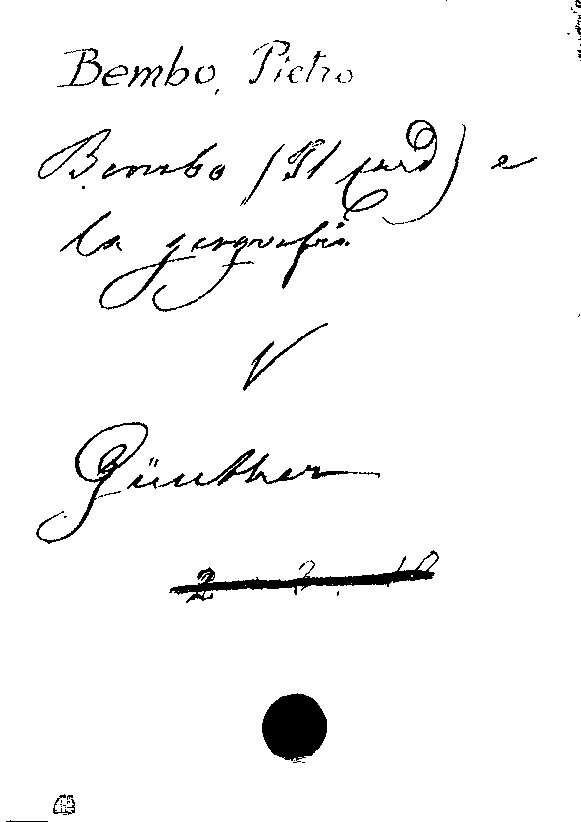 Bembo, Pietro
Bembo (Il card) e
la geografia
V
Günther
2 . 3 . 10